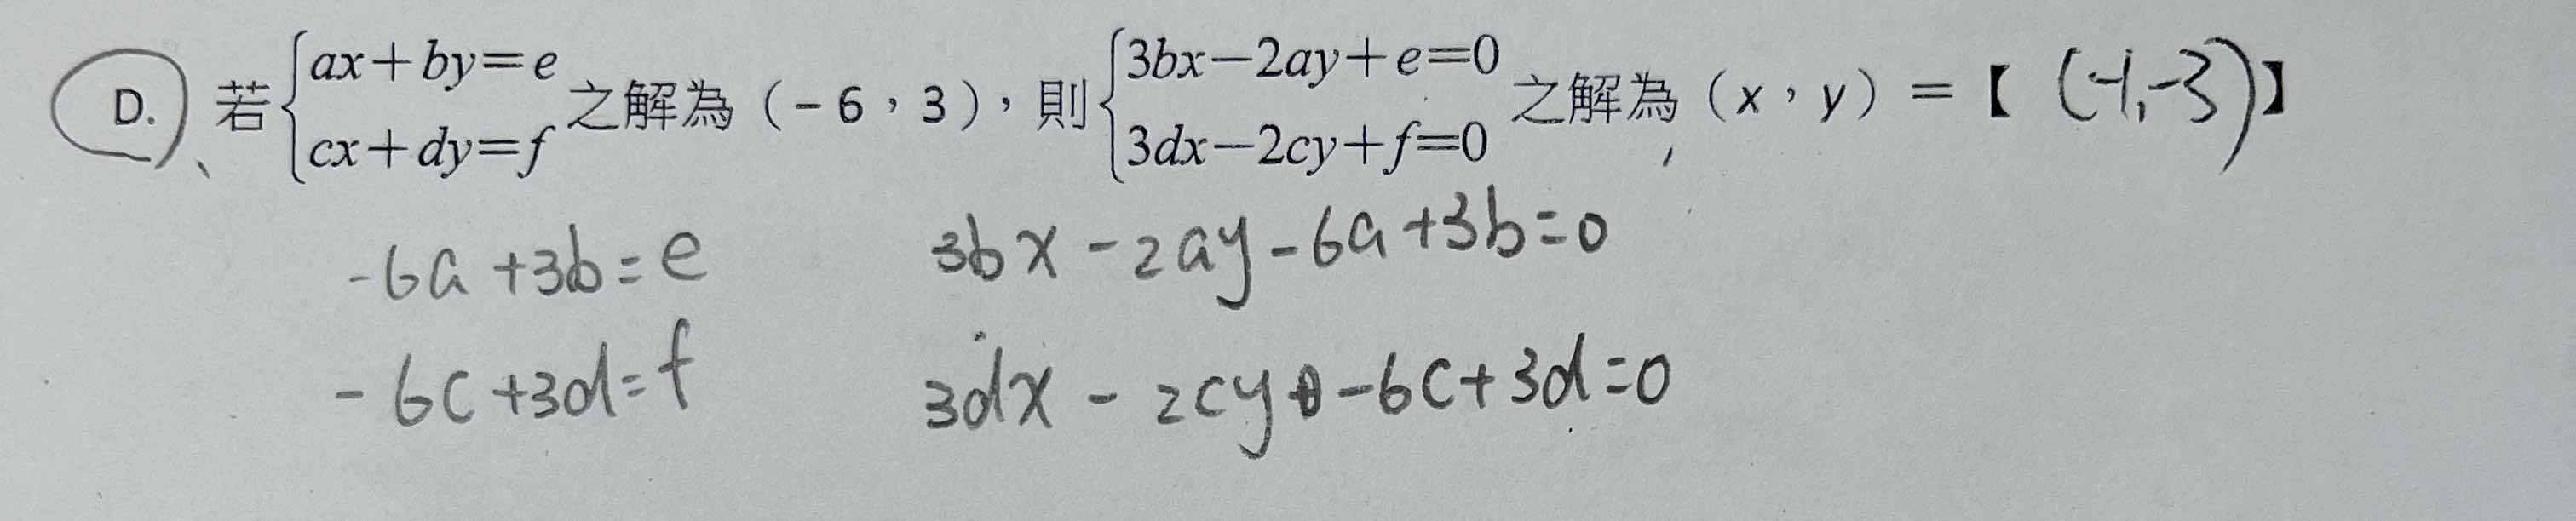 D.、若{ax+by=e 之解為（-6，3），則{3bx-2ay+e=0 之解為（x，y）=【 (-1,-3) 】
cx+dy=f 3dx-2cy+f=0
-6a+3b=e 3bx-2ay-6a+3b=0
-6c+3d=f 3dx-2cy-6c+3d=0